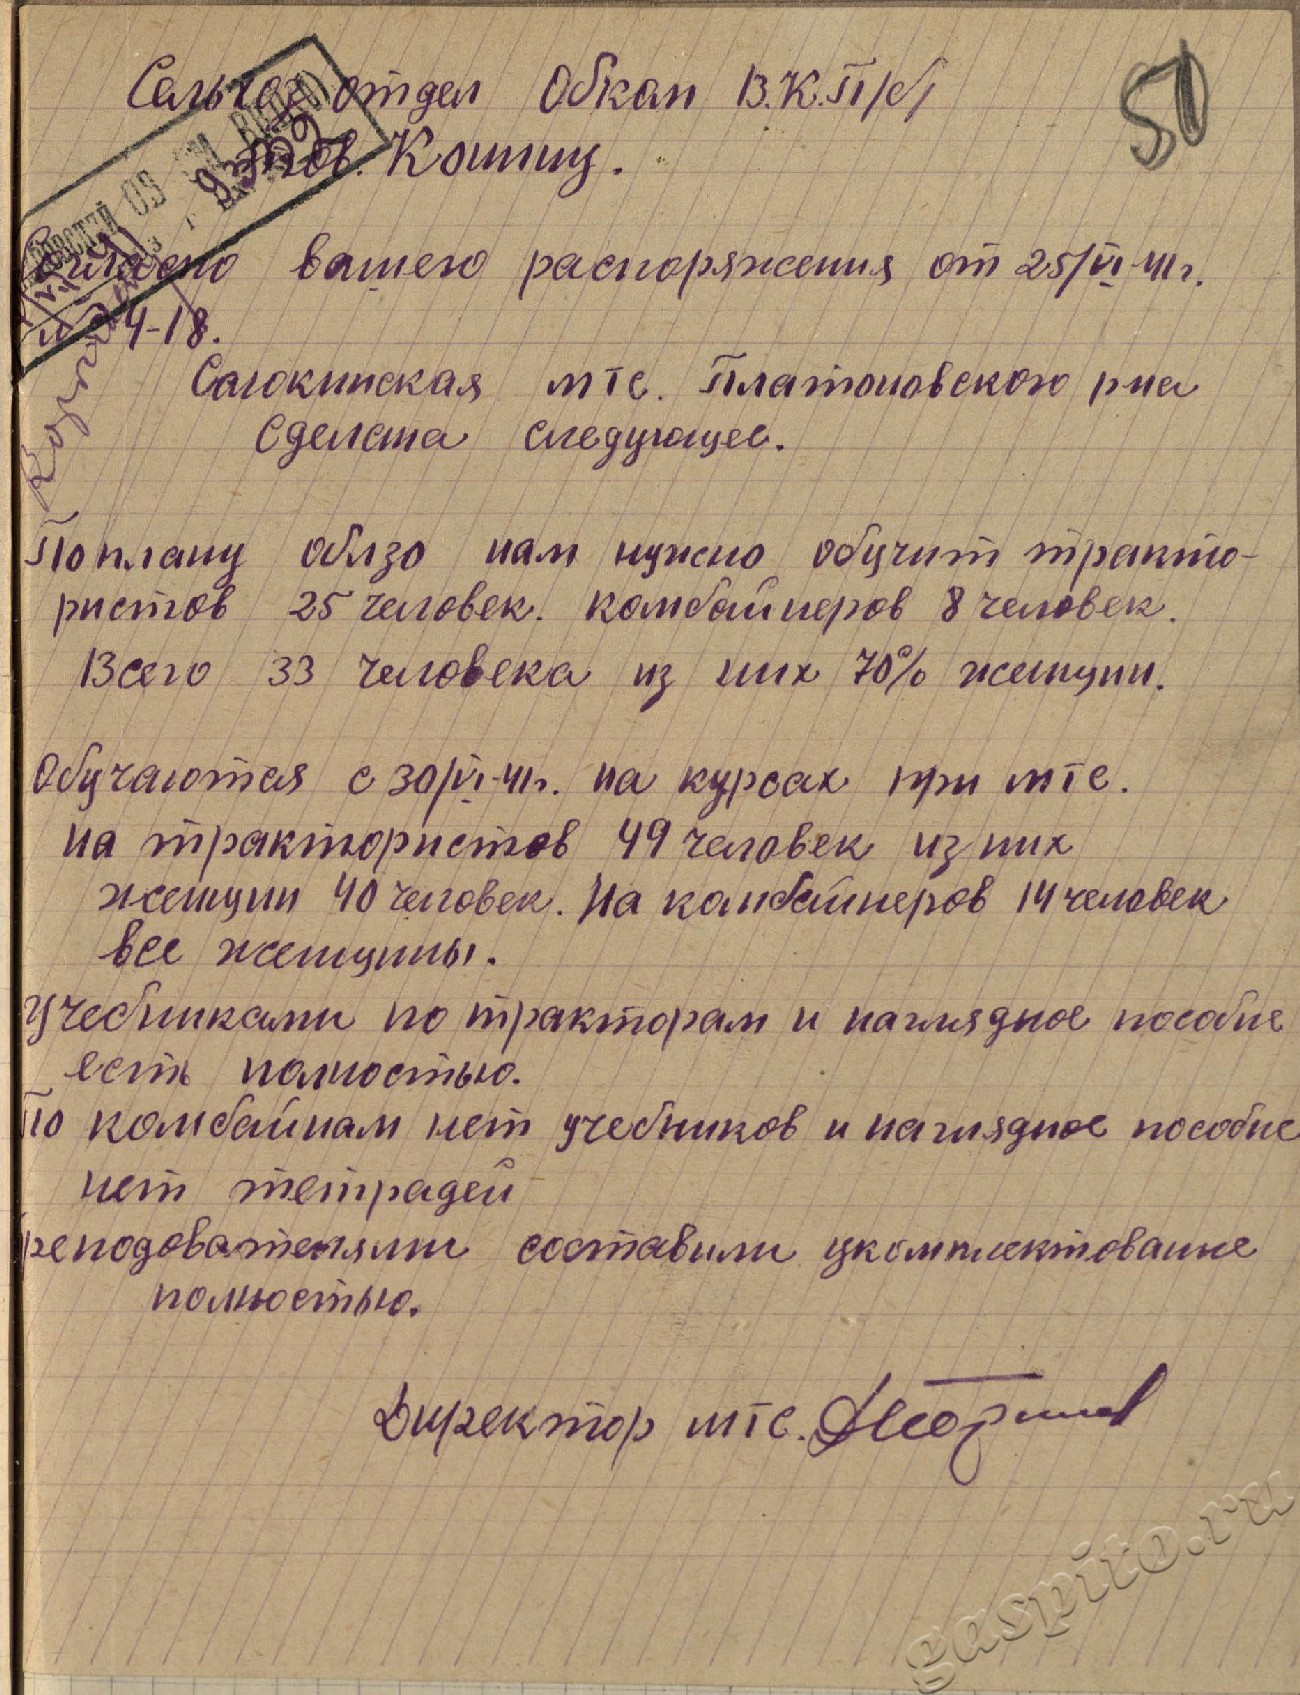 50
Сельхоз отдел Обкап В.К.П/б/
тов. Кошицу.
Согласно вашего распоряжения от 25/VI-41г.
№ 4-18.
Сагокинская МТС. Платоновского рна
Сделана следующее.
По плану облзо нам нужно обучит тракто-
ристов 25 человек. комбайнеров 8 человек.
Всего 33 человека из них 70% женщин.
Обучаются с 30/VI-41г. на курсах при МТС.
на трактористов 49 человек из них
женщин 40 человек. На комбайнеров 14 человек
все женщины.
Учебниками по тракторам и наглядное пособие
есть полностью.
По комбайнам нет учебников и наглядное пособие
нет тетрадей
реподователями составили укомплектование
полностью.
Директор МТС.
gaspito.ru